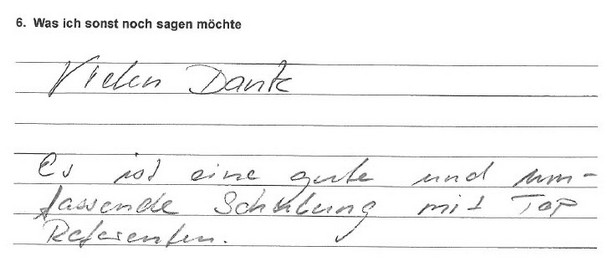 6. Was ich sonst noch sagen möchte
Vielen Dank
Es ist eine gute und um-
fassende Schulung mit Top
Referenten.